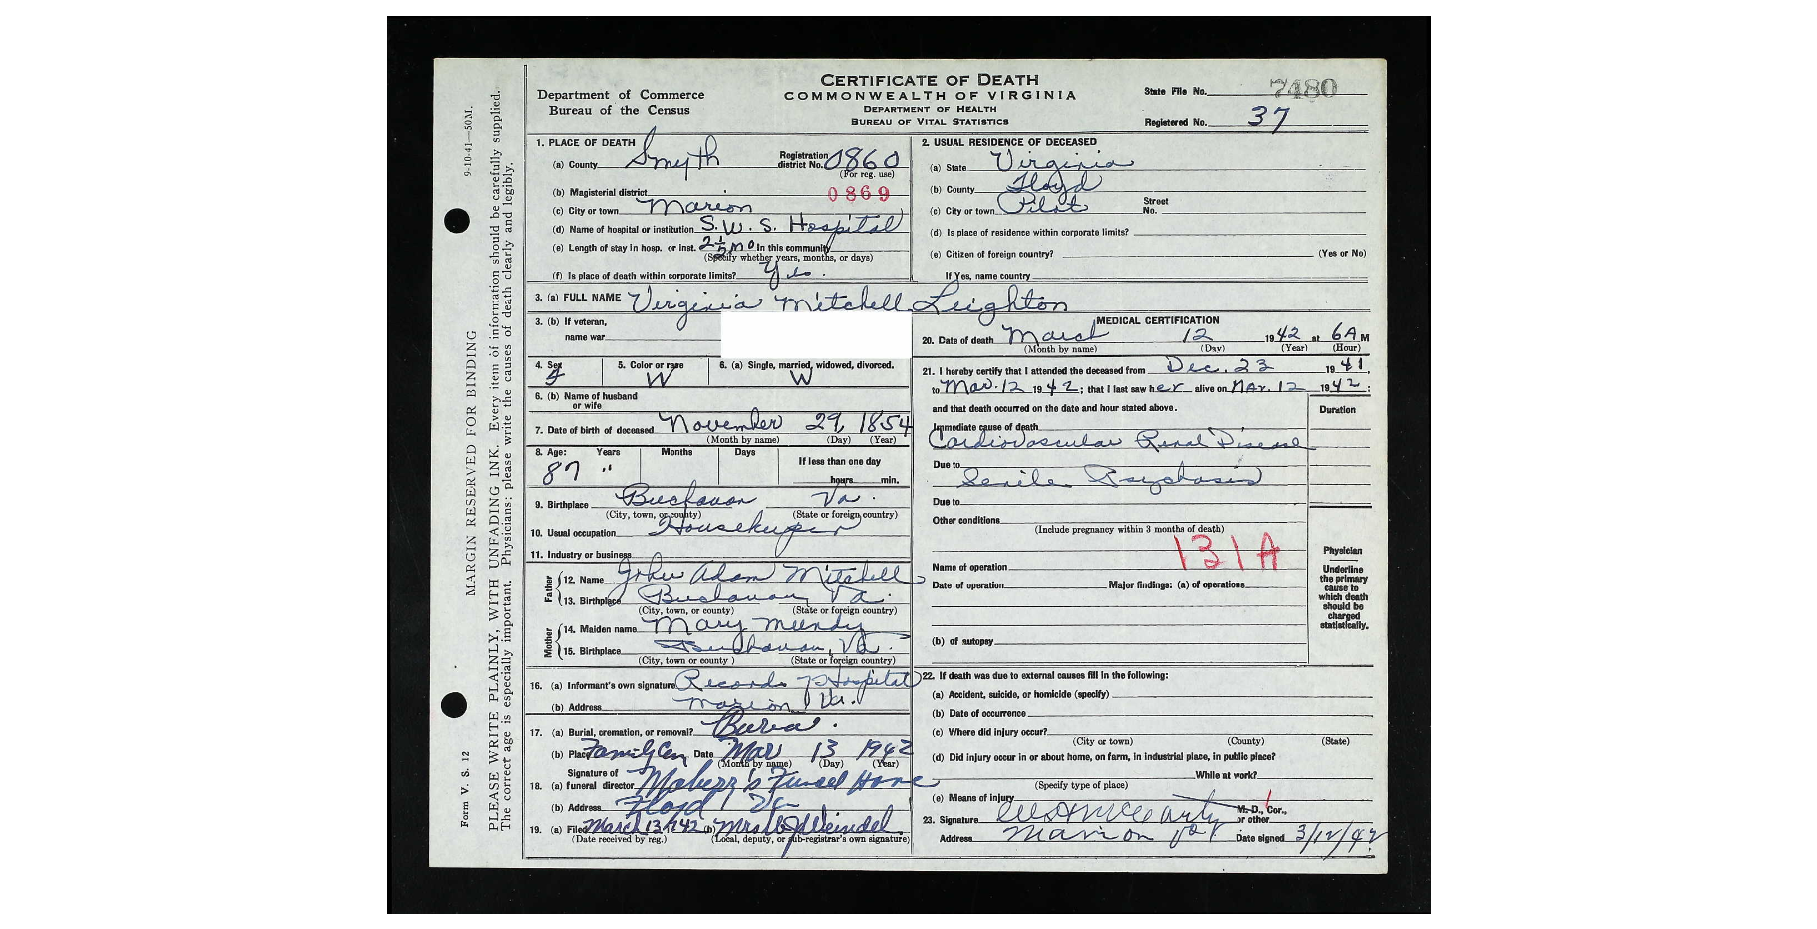 CERTIFICATE OF DEATH
COMMONWEALTH OF VIRGINIA
DEPARTMENT OF HEALTH
BUREAU OF VITAL STATISTICS
Department of Commerce
Bureau of the Census
State File No. 7480
Registered No. 37
9-10-41—50M.
MARGIN RESERVED FOR BINDING
Form V. S. 12
PLEASE WRITE PLAINLY, WITH UNFADING INK. Every item of information should be carefully supplied.
The correct age is especially important. Physicians: please write the causes of death clearly and legibly.
1. PLACE OF DEATH
(a) County Smyth Registration district No. 0860
(For reg. use)
(b) Magisterial district 0869
(c) City or town Marion
(d) Name of hospital or institution S. W. S. Hospital
(e) Length of stay in hosp. or inst. 2½ mo In this community
(Specify whether years, months, or days)
(f) Is place of death within corporate limits? Yes.
2. USUAL RESIDENCE OF DECEASED
(a) State Virginia
(b) County Floyd
(c) City or town Pilot Street No.
(d) Is place of residence within corporate limits?
(e) Citizen of foreign country? (Yes or No)
If Yes, name country
3. (a) FULL NAME Virginia Mitchell Leighton
3. (b) If veteran,
name war
4. Sex F 5. Color or race W 6. (a) Single, married, widowed, divorced. W
6. (b) Name of husband
or wife
7. Date of birth of deceased November 29, 1854
(Month by name) (Day) (Year)
8. Age: Years Months Days If less than one day
87 " hours min.
9. Birthplace Buchanan Va.
(City, town, or county) (State or foreign country)
10. Usual occupation Housekeeper
11. Industry or business
Father
12. Name John Adam Mitchell
13. Birthplace Buchanan, Va.
(City, town, or county) (State or foreign country)
Mother
14. Maiden name Mary Mundy
15. Birthplace Buchanan, Va.
(City, town or county ) (State or foreign country)
16. (a) Informant's own signature Records Hospital
(b) Address Marion Va.
17. (a) Burial, cremation, or removal? Burial.
(b) Place Family Cem Date Mar 13 1942
(Month by name) (Day) (Year)
Signature of
18. (a) funeral director Maberry's Funeral Home
(b) Address Floyd Va
19. (a) Filed March 13, 1942 (b) Mrs
(Date received by reg.) (Local, deputy, or sub-registrar's own signature)
MEDICAL CERTIFICATION
20. Date of death March 12 1942 at 6A M
(Month by name) (Day) (Year) (Hour)
21. I hereby certify that I attended the deceased from Dec. 23 1941,
to Mar. 12 1942; that I last saw her alive on Mar. 12 1942;
and that death occurred on the date and hour stated above.
Duration
Immediate cause of death
Cardiovascular Renal Disease
Due to
Senile Psychosis
Due to
Other conditions
(Include pregnancy within 3 months of death)
131A
Name of operation
Date of operation Major findings: (a) of operations
(b) of autopsy
Physician
Underline
the primary
cause to
which death
should be
charged
statistically.
22. If death was due to external causes fill in the following:
(a) Accident, suicide, or homicide (specify)
(b) Date of occurrence
(c) Where did injury occur?
(City or town) (County) (State)
(d) Did injury occur in or about home, on farm, in industrial place, in public place?
While at work?
(Specify type of place)
(e) Means of injury
23. Signature M. D., Cor., or other
Address Marion Va Date signed 3/12/42